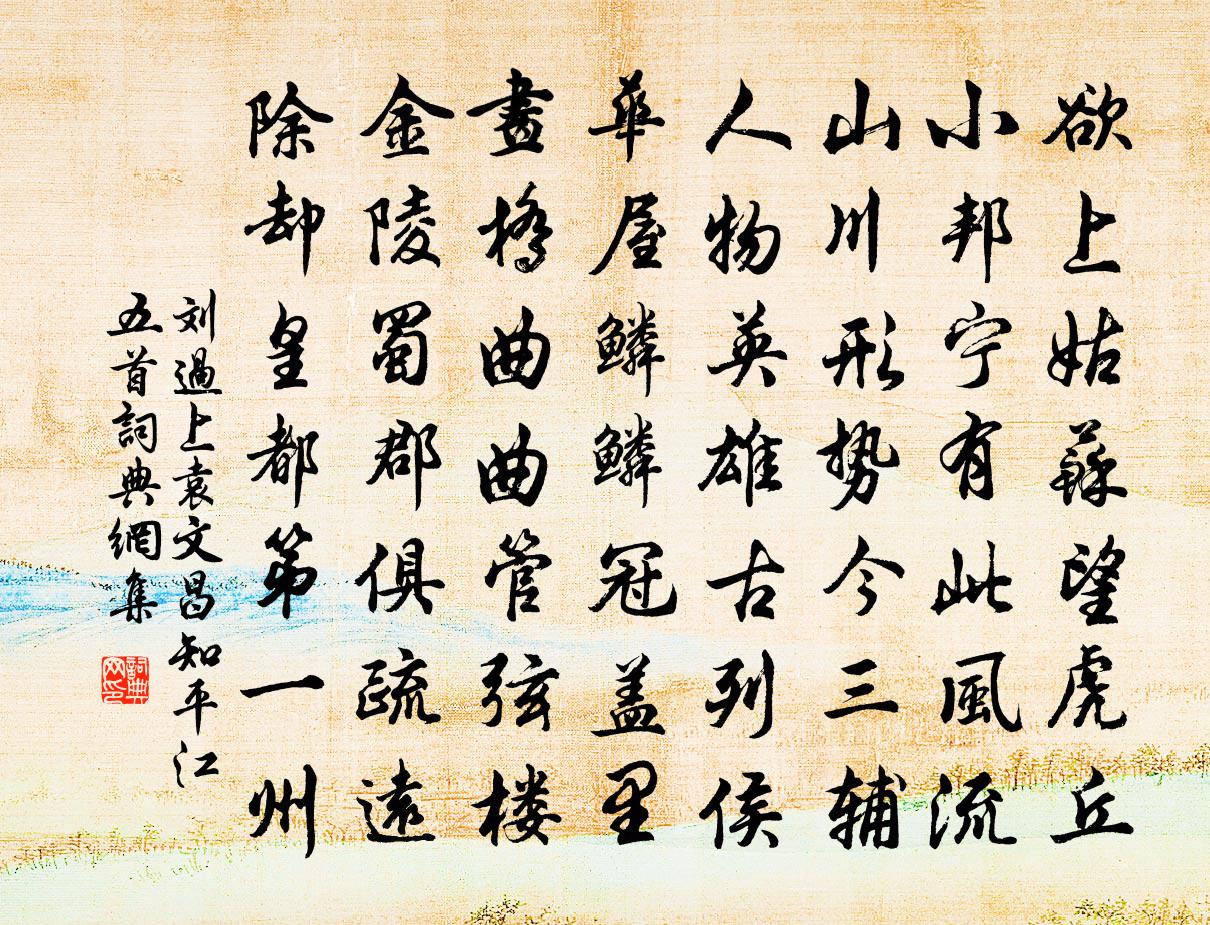 欲上姑蘇望虎丘
小邦宁有此風流
山川形势今三辅
人物英雄古列侯
華屋鱗鱗冠盖里
畫橋曲曲管弦楼
金陵蜀郡俱疏遠
除却皇都第一州
刘過上袁文昌知平江
五首詞典網集
詞典网印